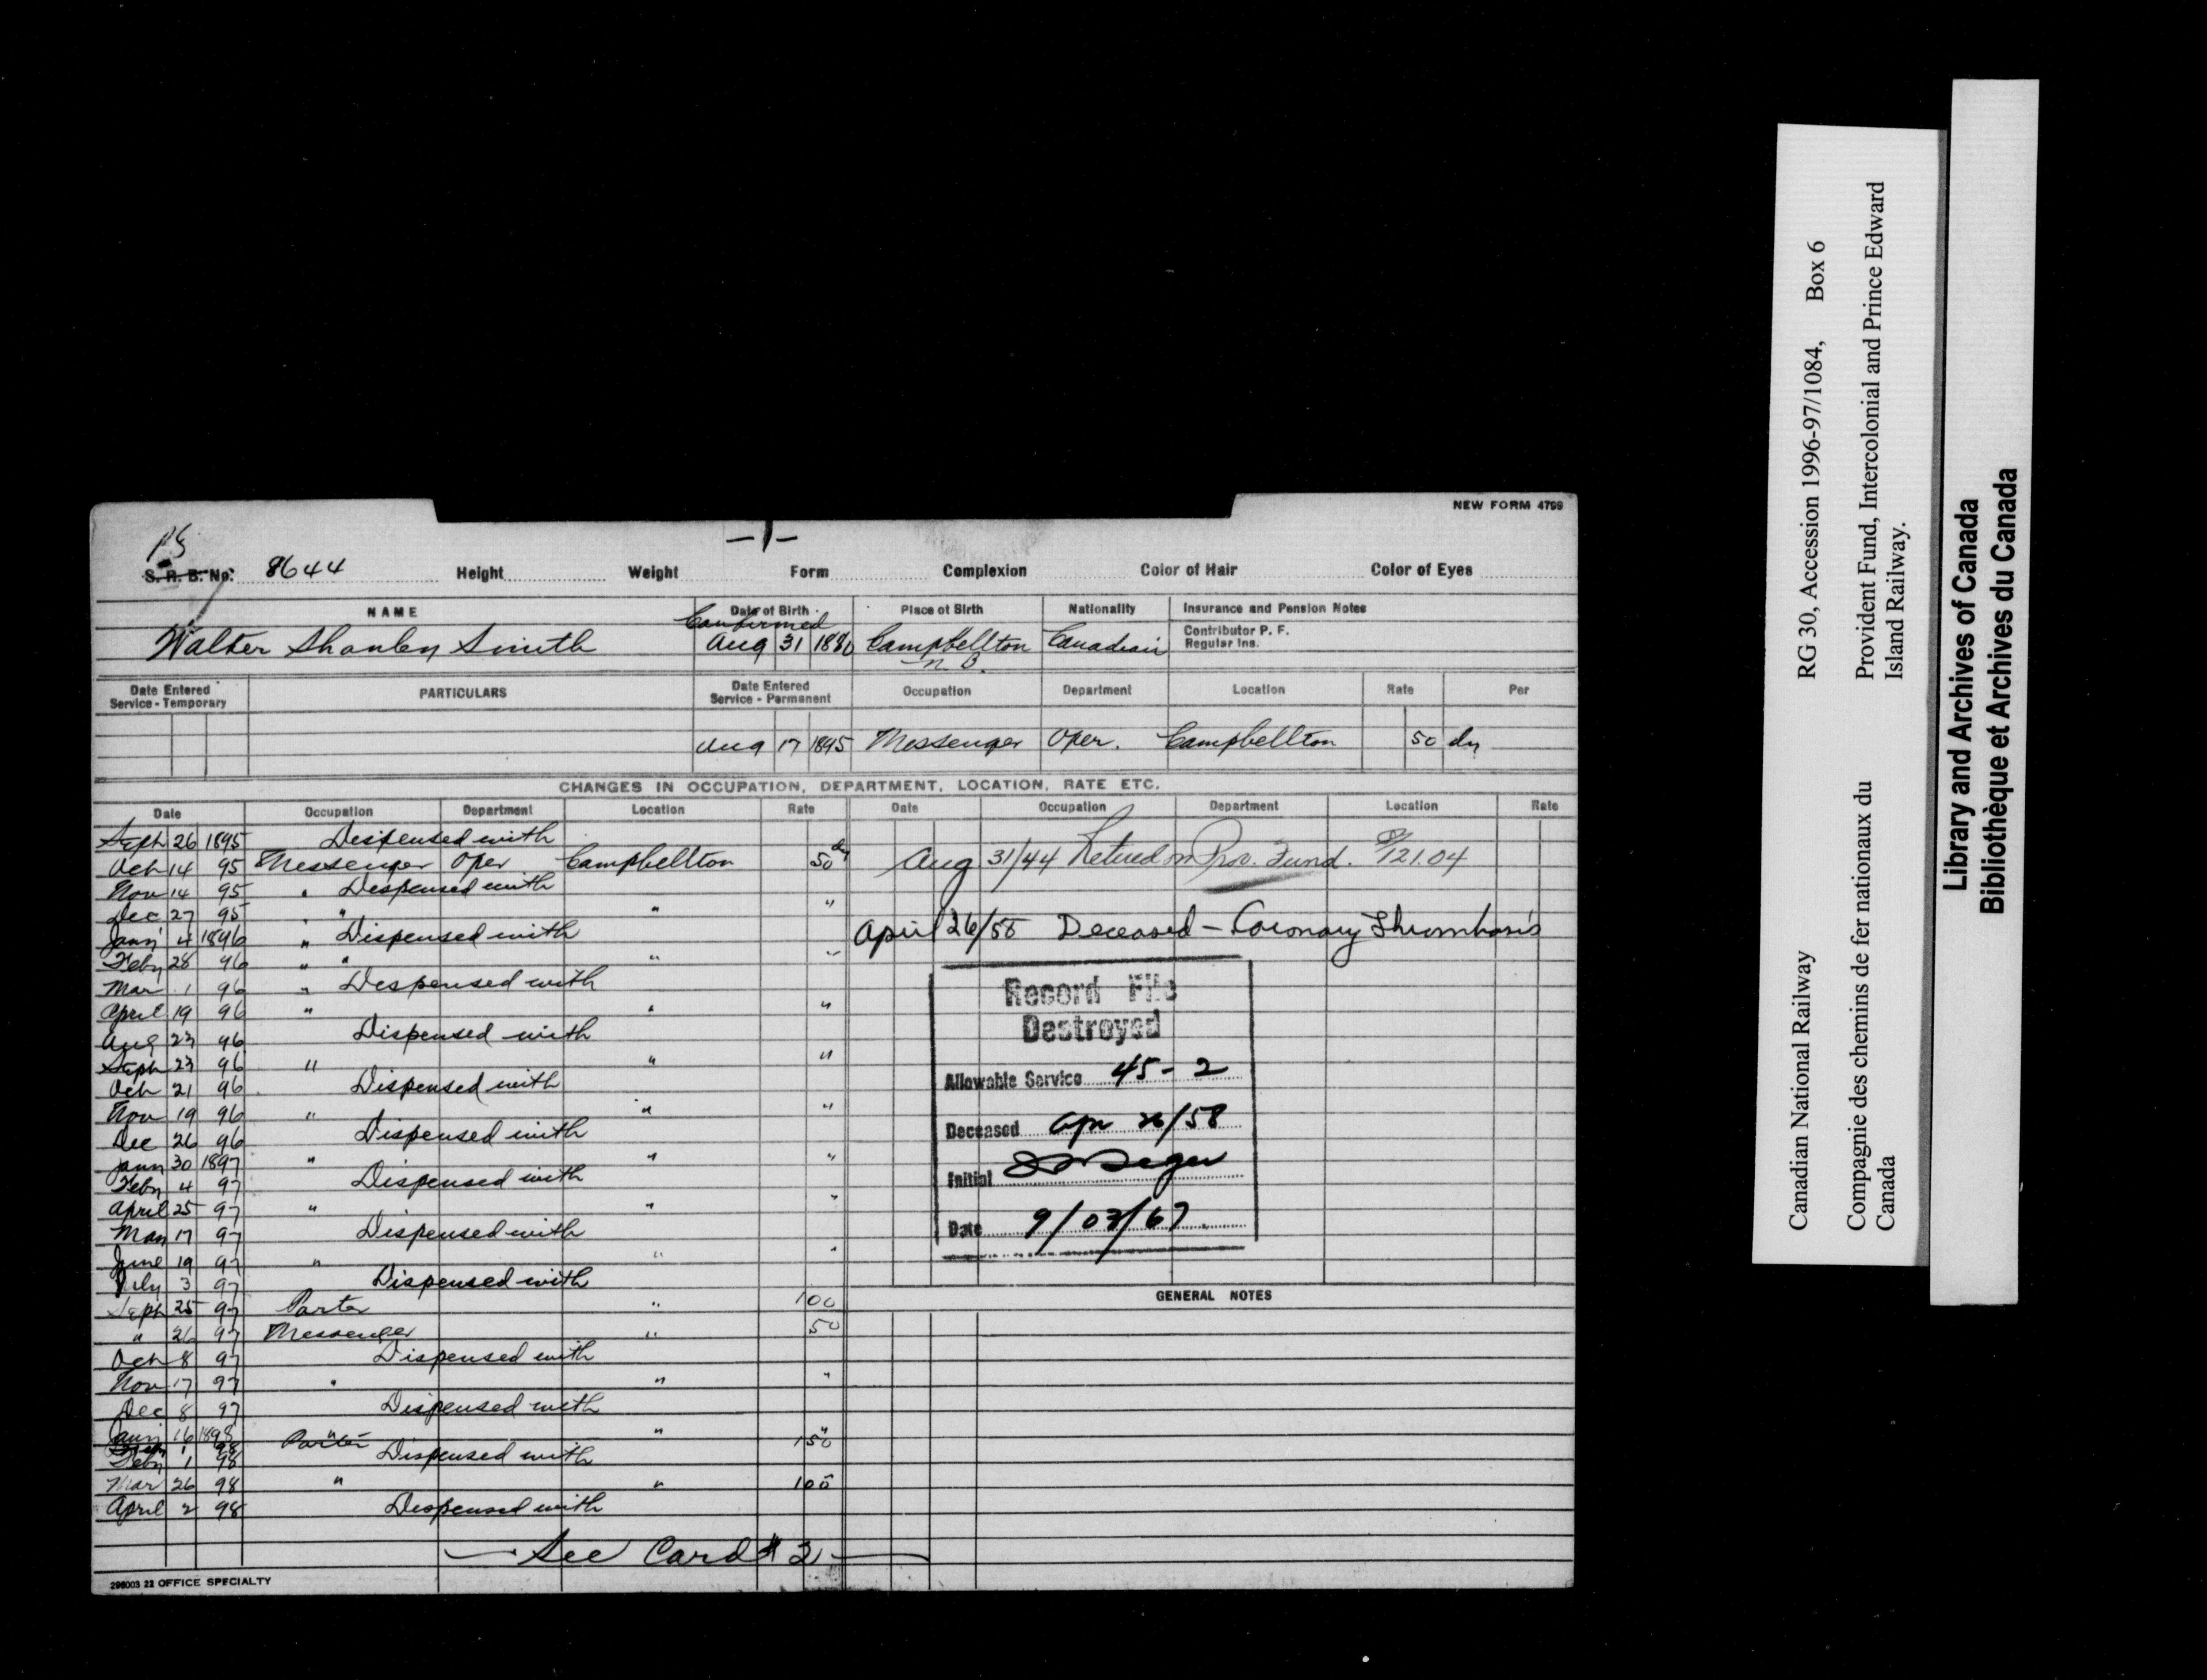 NEW FORM 4799
-1-
PS
S. R. B. No. 8644 Height Weight Form Complexion Color of Hair Color of Eyes
NAME Date of Birth Place of Birth Nationality Insurance and Pension Notes
Confirmed
Contributor P. F.
Walter Shanley Smith Aug 31 1880 Campbellton Canadian Regular Ins.
N. B.
Date Entered Service - Temporary PARTICULARS Date Entered Service - Permanent Occupation Department Location Rate Per
Aug 17 1895 Messenger Oper. Campbellton 50 dy
CHANGES IN OCCUPATION, DEPARTMENT, LOCATION, RATE ETC.
Date Occupation Department Location Rate Date Occupation Department Location Rate
Sept 26 1895 Dispensed with
Oct 14 95 Messenger Oper Campbellton 50 dy
Nov 14 95 " Dispensed with
Dec 27 95 " " " "
Jany 4 1896 " Dispensed with
Feby 28 96 " " " "
Mar 1 96 " Dispensed with
April 19 96 " " "
Aug 23 96 Dispensed with
Sept 23 96 " " "
Oct 21 96 Dispensed with
Nov 19 96 " " "
Dec 26 96 Dispensed with
Jany 30 1897 " " "
Feby 4 97 Dispensed with
April 25 97 " " "
May 17 97 Dispensed with
June 19 97 " " "
July 3 97 Dispensed with
Sept 25 97 Porter " 100
" 26 97 Messenger " 50
Oct 8 97 Dispensed with
Nov 17 97 " " "
Dec 8 97 Dispensed with
Jany 16 1898 " " "
Porter 150
Feby 1 98 Dispensed with
Mar 26 98 " " 100
April 2 98 Dispensed with
See Card # 2
Aug 31/44 Retired on Prov. Fund. 121.04
April 26/58 Deceased - Coronary Thrombosis
Record File
Destroyed
Allowable Service 45-2
Deceased Apr 26/58
Initial
Date 9/03/67
GENERAL NOTES
296003 22 OFFICE SPECIALTY
Canadian National Railway RG 30, Accession 1996-97/1084, Box 6
Compagnie des chemins de fer nationaux du Provident Fund, Intercolonial and Prince Edward
Canada Island Railway.
Library and Archives of Canada
Bibliothèque et Archives du Canada